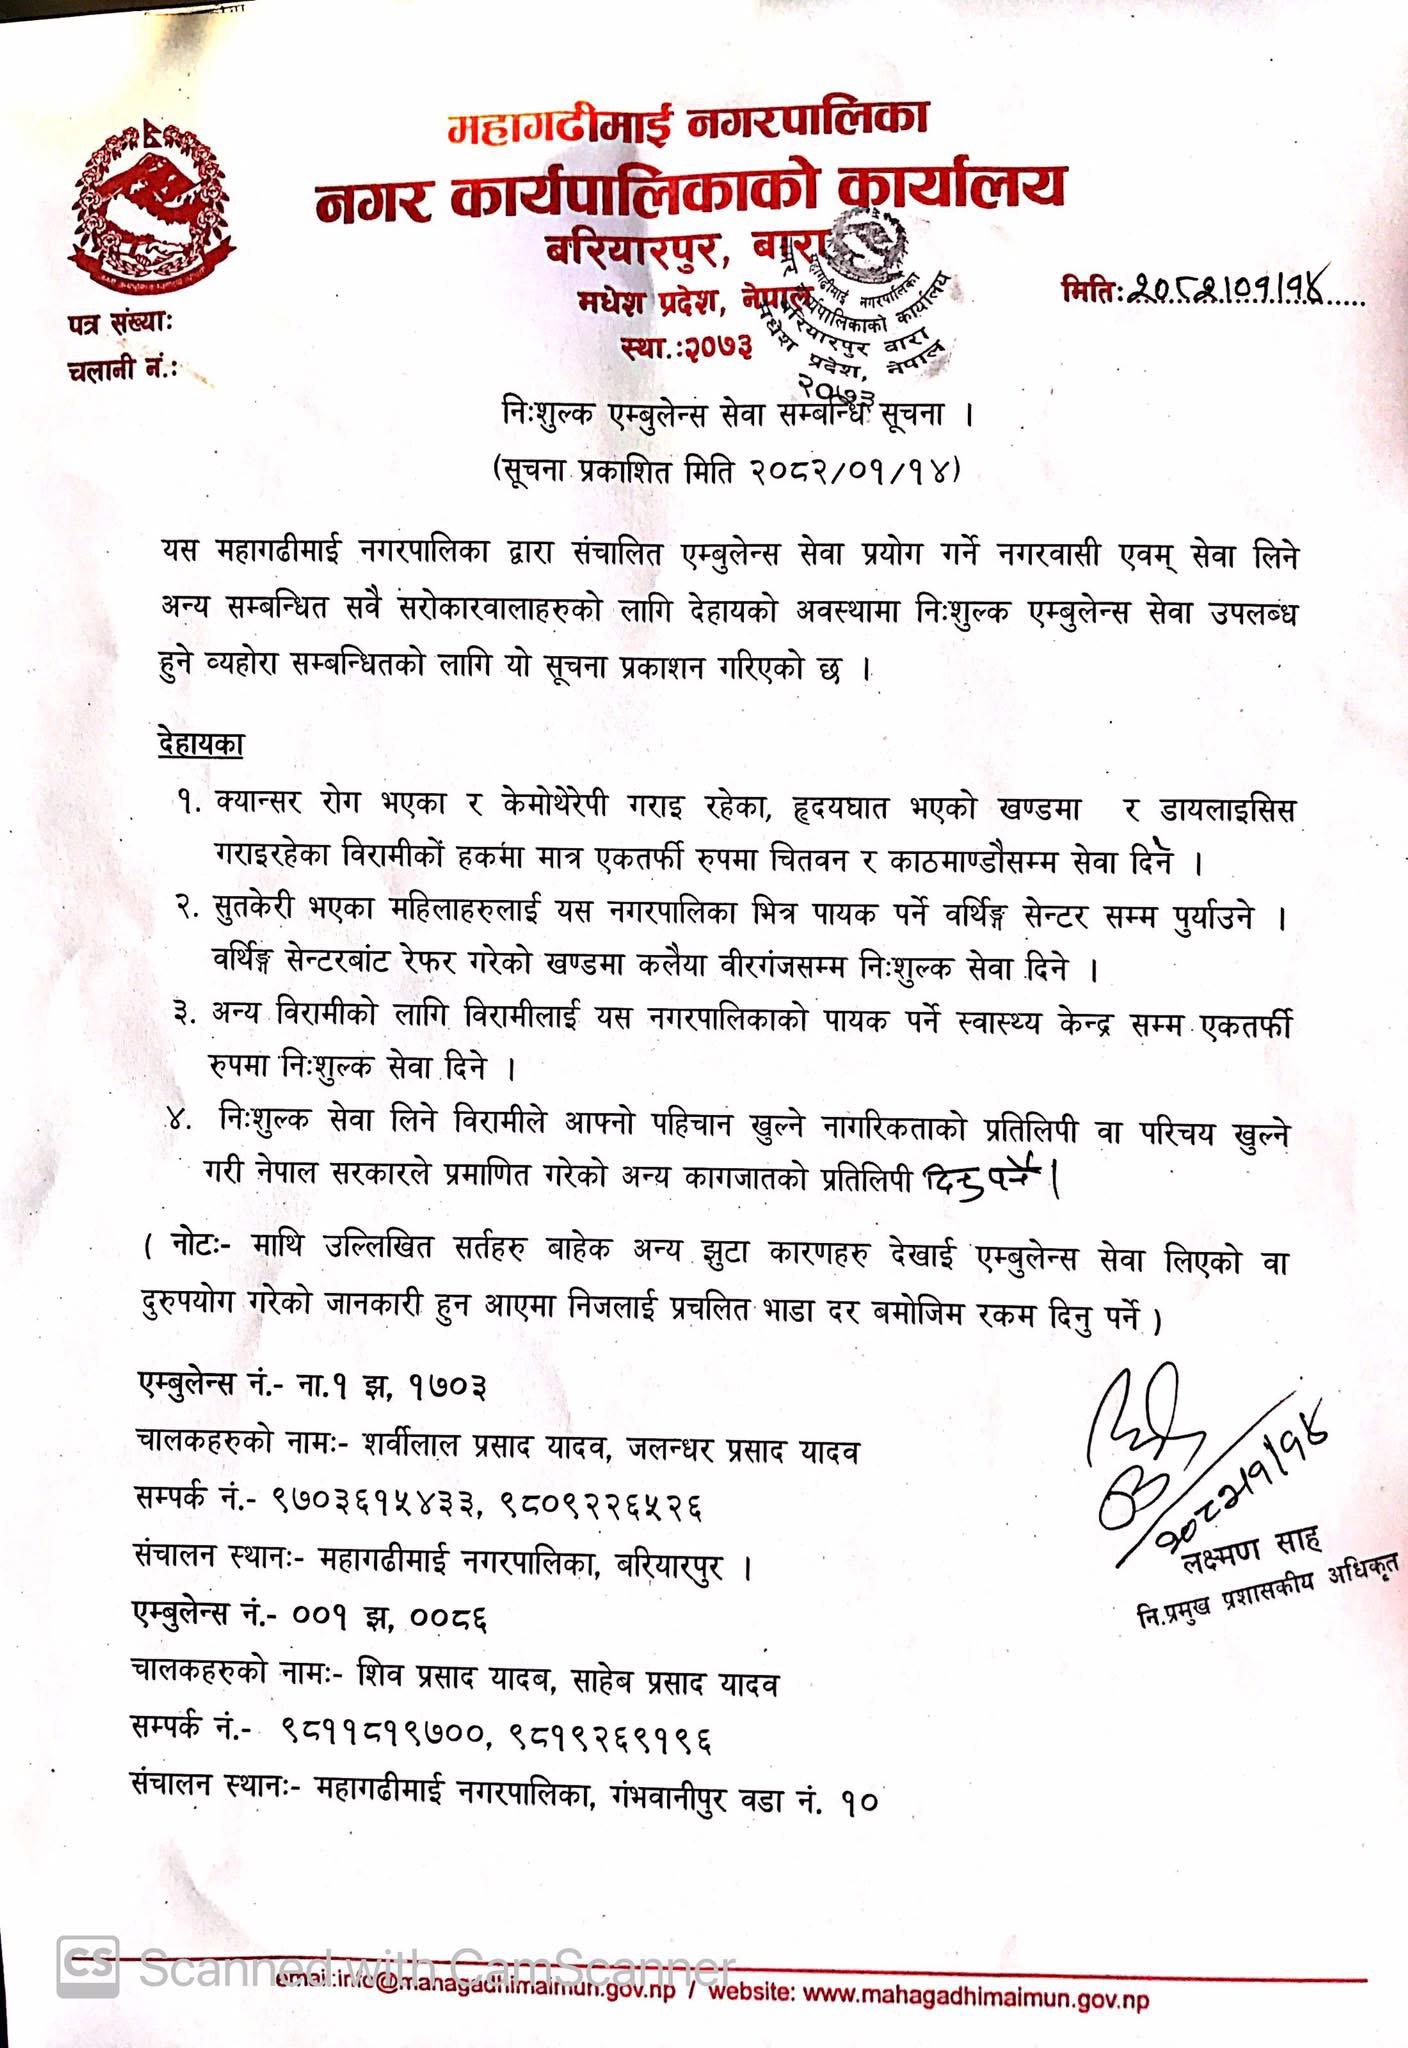 महागढीमाई नगरपालिका
नगर कार्यपालिकाको कार्यालय
बरियारपुर, बारा
मधेश प्रदेश, नेपाल
स्था.:२०७३
मिति:२०८२।०१।१४
पत्र संख्या:
चलानी नं.:
महागढीमाई नगरपालिका
नगर कार्यपालिकाको कार्यालय
बरियारपुर बारा
मधेश प्रदेश, नेपाल
२०७३
नि:शुल्क एम्बुलेन्स सेवा सम्बन्धि सूचना ।
(सूचना प्रकाशित मिति २०८२/०१/१४)
यस महागढीमाई नगरपालिका द्वारा संचालित एम्बुलेन्स सेवा प्रयोग गर्ने नगरवासी एवम् सेवा लिने
अन्य सम्बन्धित सवै सरोकारवालाहरुको लागि देहायको अवस्थामा नि:शुल्क एम्बुलेन्स सेवा उपलब्ध
हुने व्यहोरा सम्बन्धितको लागि यो सूचना प्रकाशन गरिएको छ ।
देहायका
१. क्यान्सर रोग भएका र केमोथेरेपी गराइ रहेका, हृदयघात भएको खण्डमा र डायलाइसिस
गराइरहेका विरामीकों हकमा मात्र एकतर्फी रुपमा चितवन र काठमाण्डौसम्म सेवा दिने ।
२. सुतकेरी भएका महिलाहरुलाई यस नगरपालिका भित्र पायक पर्ने वर्थिङ्ग सेन्टर सम्म पुर्याउने ।
वर्थिङ्ग सेन्टरबांट रेफर गरेको खण्डमा कलैया वीरगंजसम्म नि:शुल्क सेवा दिने ।
३. अन्य विरामीको लागि विरामीलाई यस नगरपालिकाको पायक पर्ने स्वास्थ्य केन्द्र सम्म एकतर्फी
रुपमा नि:शुल्क सेवा दिने ।
४. नि:शुल्क सेवा लिने विरामीले आफ्नो पहिचान खुल्ने नागरिकताको प्रतिलिपी वा परिचय खुल्ने
गरी नेपाल सरकारले प्रमाणित गरेको अन्य कागजातको प्रतिलिपी दिनु पर्ने ।
( नोट:- माथि उल्लिखित सर्तहरु बाहेक अन्य झुटा कारणहरु देखाई एम्बुलेन्स सेवा लिएको वा
दुरुपयोग गरेको जानकारी हुन आएमा निजलाई प्रचलित भाडा दर बमोजिम रकम दिनु पर्ने )
एम्बुलेन्स नं.- ना.१ झ, १७०३
चालकहरुको नाम:- शर्वीलाल प्रसाद यादव, जलन्धर प्रसाद यादव
सम्पर्क नं.- ९७०३६१५४३३, ९८०९२२६५२६
संचालन स्थान:- महागढीमाई नगरपालिका, बरियारपुर ।
एम्बुलेन्स नं.- ००१ झ, ००८६
चालकहरुको नाम:- शिव प्रसाद यादब, साहेब प्रसाद यादव
सम्पर्क नं.- ९८११८१९७००, ९८१९२६९१९६
संचालन स्थान:- महागढीमाई नगरपालिका, गंभवानीपुर वडा नं. १०
२०८२।०१।१४
लक्ष्मण साह
नि.प्रमुख प्रशासकीय अधिकृत
CS Scanned with CamScanner
email:info@mahagadhimaimun.gov.np / website: www.mahagadhimaimun.gov.np